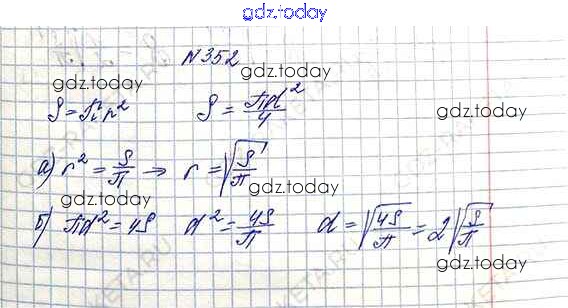 gdz.today
N352
gdz.today
gdz.today
S = πr² S = πd²/4
gdz.today
а) r² = S/π ⇒ r = √(S/π)
gdz.today
gdz.today
б) πd² = 4S d² = 4S/π d = √(4S/π) = 2√(S/π)
gdz.today